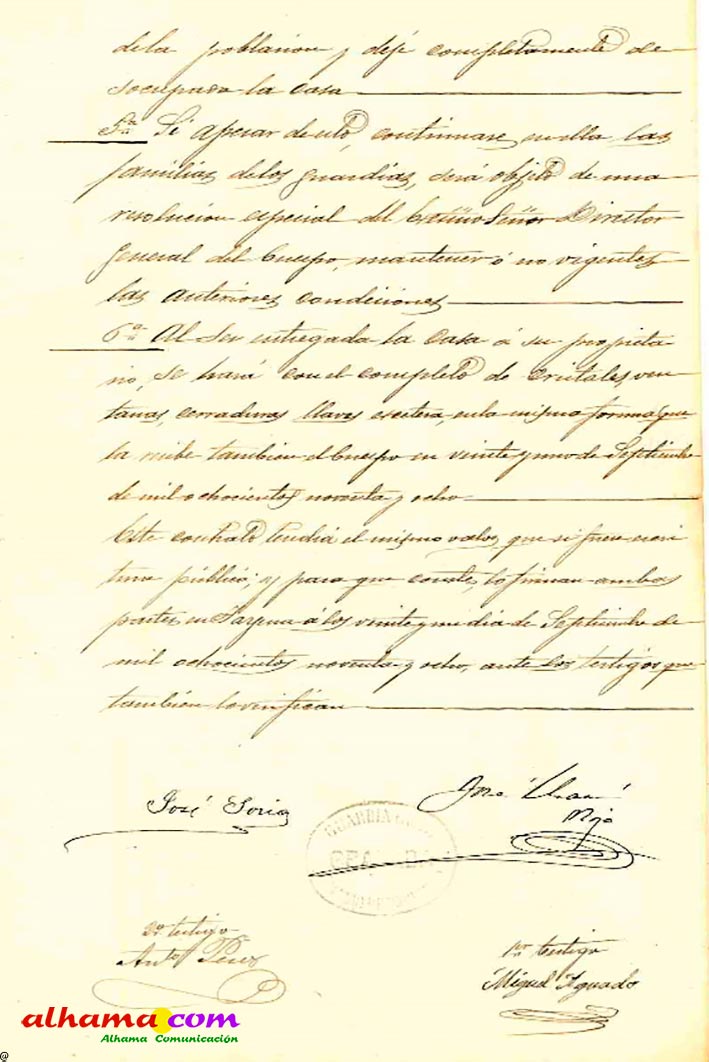 de la poblacion y deje completamente de
socupada la casa
5ª Si apesar de esto, continuase en ella las
familias de los guardias, será objeto de una
resolucion especial del Excmo Señor Director
General del Cuerpo, mantener ó no vigentes
las anteriores condiciones
6ª Al ser entregada la casa á su propieta
rio, se hará con el completo de cristales, ven
tanas, cerraduras llaves escetera, en la misma forma que
la recibe tambien el Cuerpo en veinte y uno de Septiembre
de mil ochocientos noventa y ocho
Este contrato tendrá el mismo valor que si fuera escri
tura pública; y para que conste, lo firman ambas
partes, en á los veinte y un dia de Septiembre de
mil ochocientos noventa y ocho, ante los testigos que
también lo verifican
José Soria
José
GUARDIA CIVIL
2º testigo
Antº Perez
1er testigo
Miguel Aguado
alhama.com
Alhama Comunicación
@